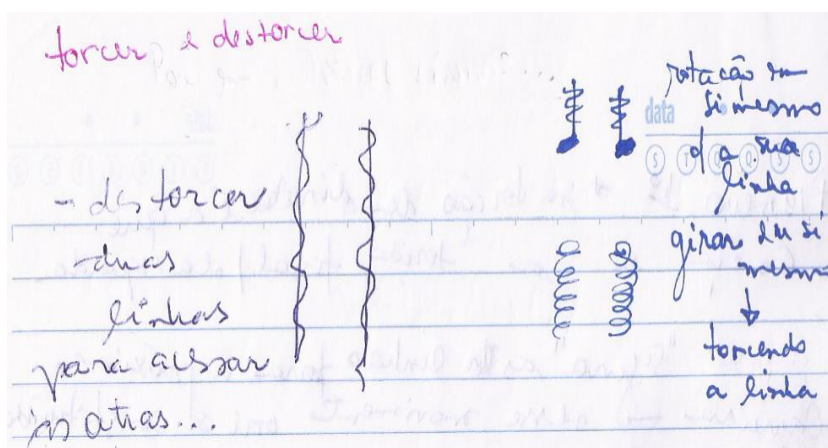 torcer e destorcer
- destorcer
duas
linhas
para acessar
as atras...
rotação em
si mesmo
d a sua
linha
girar em si
mesmo
torcendo
a linha
data
S T Q Q S S